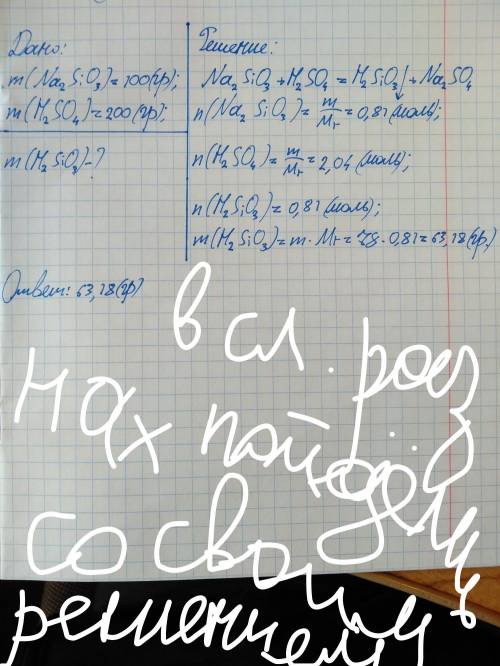 Дано:
m(Na₂SiO₃)=100(гр);
m(H₂SO₄)=200(гр);
m(H₂SiO₃)-?
Решение:
Na₂SiO₃+H₂SO₄=H₂SiO₃↓+Na₂SO₄
n(Na₂SiO₃)=m/Mr=0,81(моль);
n(H₂SO₄)=m/Mr=2,04(моль);
n(H₂SiO₃)=0,81(моль);
m(H₂SiO₃)=m·Mr=78·0,81=63,18(гр)
Ответ: 63,18(гр)
в сл. раз
нах пойдёшь
со своим
решением